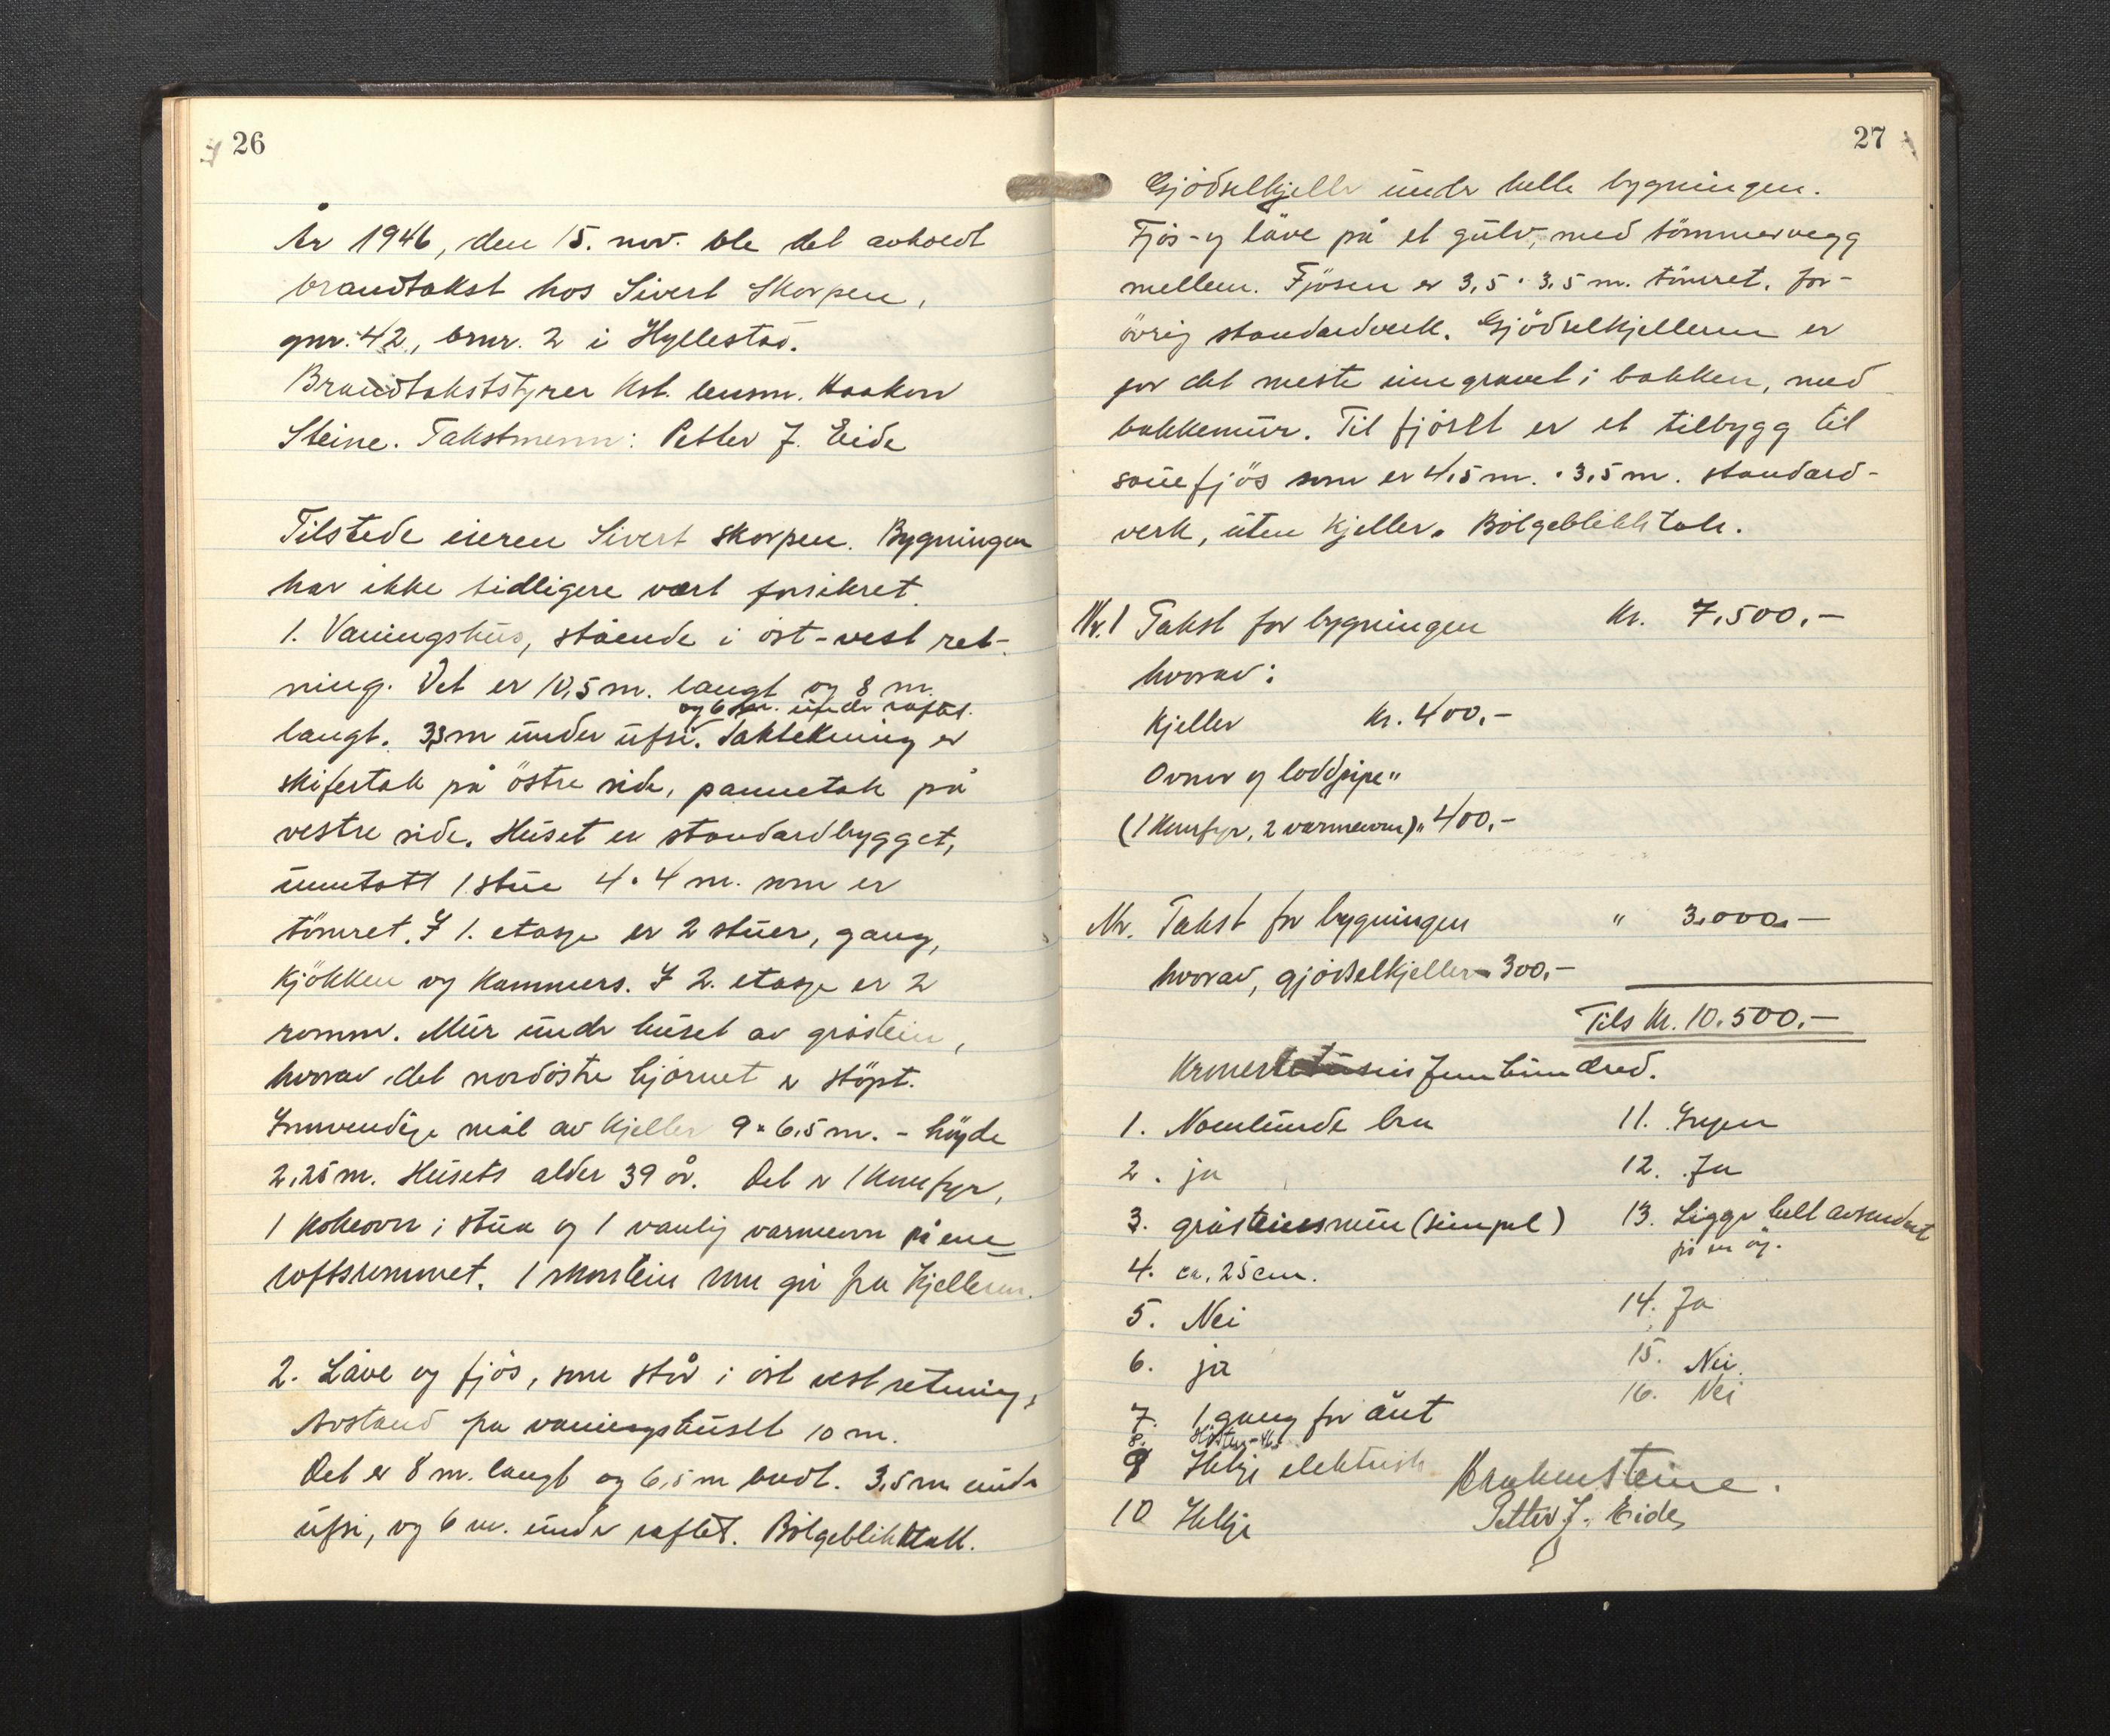 26
År 1946, den 15. nov. ble det avholdt
brandtakst hos Sivert Skorpen,
gnr. 42, bnr. 2 i Hyllestad.
Brandtakststyrer Kst. lensm. Haakon
Steine. Takstmenn: Petter J. Eide
Tilstede eieren Sivert Skorpen. Bygningen
har ikke tidligere vært forsikret.
1. Vaningshus, stående i öst-vest ret-
ning. Det er 10,5 m. langt og 8 m.
og 6 m. under raftet.
langt. 3,3 m under ufsi. Taktekning er
skifertak på östre side, pannetak på
vestre side. Huset er standardbygget,
unntatt 1 stue 4 · 4 m. som er
tömret. I 1. etasje er 2 stuer, gang,
kjökken og kammers. I 2. etasje er 2
romm. Mur under huset av gråstein,
hvorav det nordöstre hjörnet er stöpt.
Innvendige mål av kjeller 9 × 6,5 m. - höyde
2,25 m. Husets alder 39 år. Det er 1 komfyr,
1 kokeovn i stua og 1 vanlig varmeovn på ene
loftsrummet. 1 skorstein som går fra kjelleren.
2. Låve og fjös, som står i öst vest retning,
Avstand fra vaningshuset 10 m.
Det er 8 m. langt og 6,5 m bredt. 3,5 m under
ufsi, og 6 m. under raftet. Bölgeblikktak.
27
Gjödselkjeller under hele bygningen.
Fjös- og låve på et gulv, med tömmervegg
mellem. Fjösen er 3,5 · 3,5 m. tömret. for-
övrig standardverk. Gjödselkjelleren er
for det meste inngravet i bakken, med
bakkemur. Til fjöset er et tilbygg til
sauefjös som er 4,5 m. · 3,5 m. standard-
verk, uten kjeller. Bölgeblikktak.
Nr. 1 Takst for bygningen Kr. 7.500,-
hvorav:
Kjeller Kr. 400,-
Ovner og loddpipe "
(1 Komfyr, 2 varmeovn) " 400,-
Nr. Takst for bygningen " 3.000,-
hvorav, gjödselkjeller 300,-
Tils kr. 10.500,-
Kroner femhundred.
1. Noenlunde bra
2. ja
3. gråsteinsmur (simpel)
4. ca. 25 cm.
5. Nei
6. ja
7. 1 gang for året
8.
9 Helje elektrisk
10 Helje
11. Ingen
12. Ja
13. Ligger helt avsondret
på en öy.
14. Ja
15. Nei.
16. Nei
Haakon Steine.
Petter J. Eide